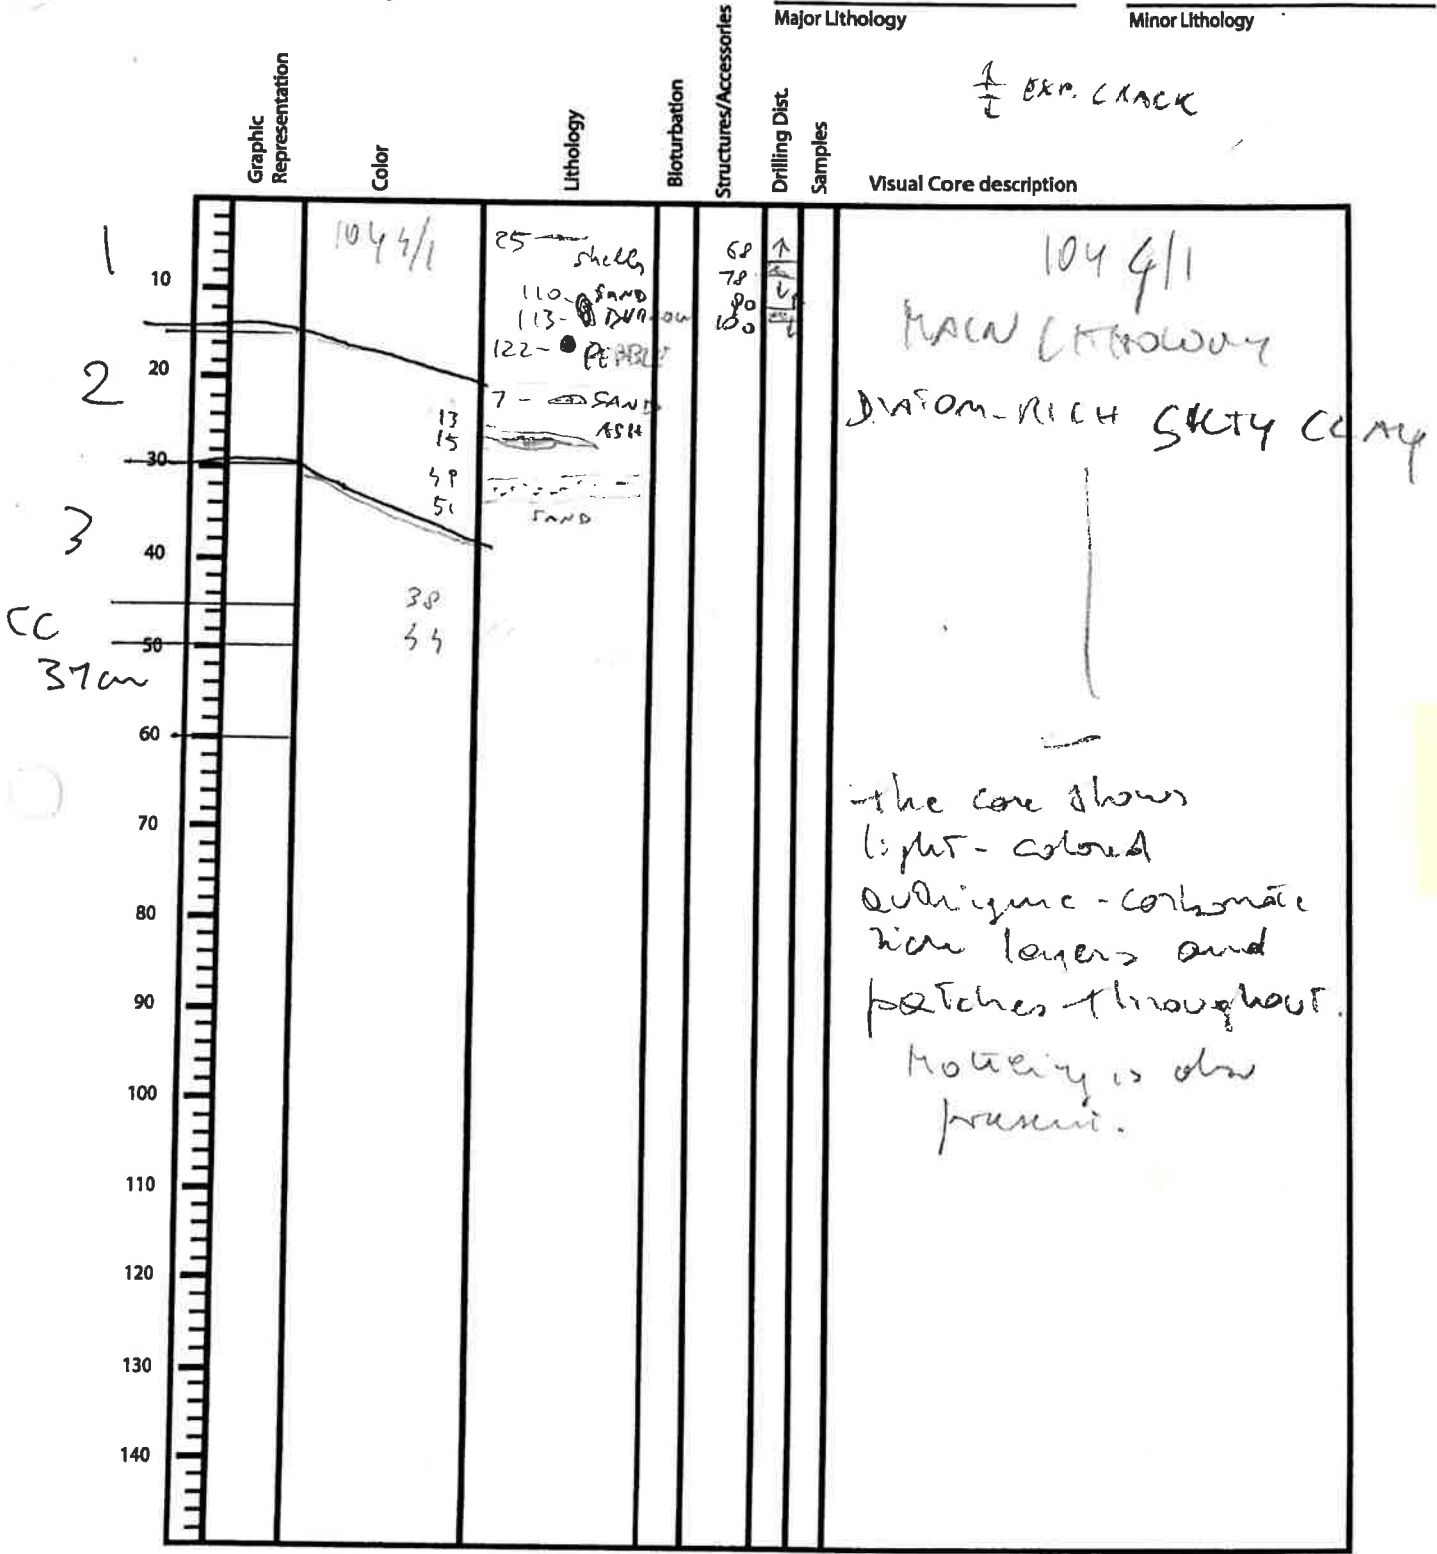 Major Lithology
Minor Lithology
EXP. CRACK
Graphic
Representation
Color
Lithology
Bioturbation
Structures/Accessories
Drilling Dist.
Samples
Visual Core description
1
2
3
CC
37cm
10
20
30
40
50
60
70
80
90
100
110
120
130
140
10Y 4/1
13
15
49
51
38
44
25
shells
110- SAND
113- BURROW
122- PEBBLE
7 - SAND
ASH
SAND
68
78
80
100
10Y 4/1
MAIN LITHOLOGY
DIATOM-RICH SILTY CLAY
The core shows
light-colored
authigenic-carbonate
rich layers and
patches throughout.
Mottling is also
present.